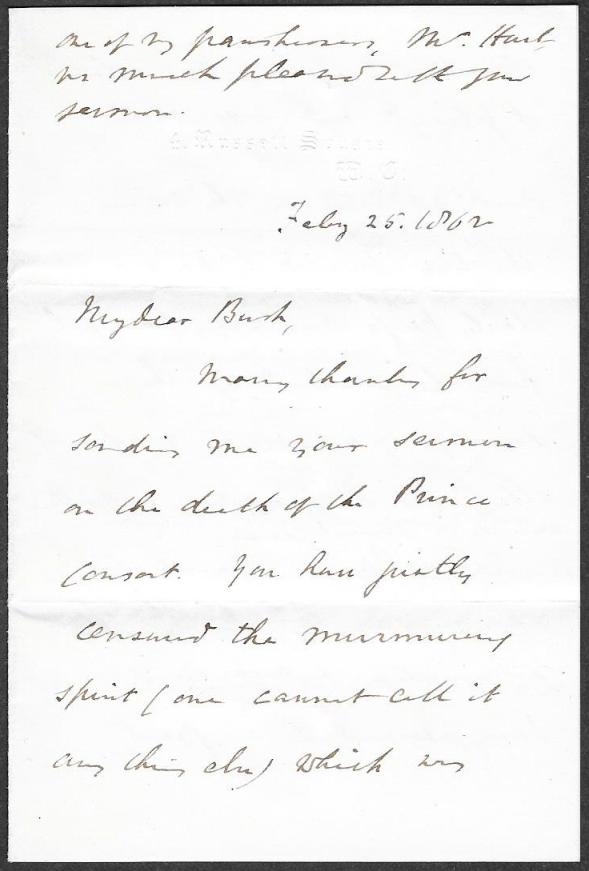 one of my parishioners, Mr. Hart,
is much pleased with your
sermon.
6. Russell Square
W. C.
Feby 25. 1862
My dear Burk,
Many thanks for
sending me your sermon
on the death of the Prince
Consort. You have justly
censured the murmuring
spirit (one cannot call it
any thing else) which was